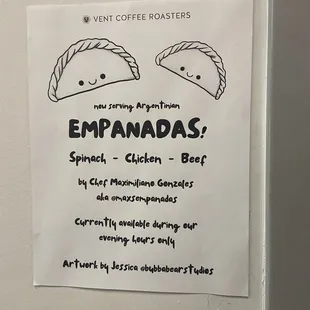 VENT COFFEE ROASTERS
now serving Argentinian
EMPANADAS!
Spinach - Chicken - Beef
by Chef Maximiliano Gonzales
aka @maxsempanadas
Currently available during our
evening hours only
Artwork by Jessica @bubbabearstudios